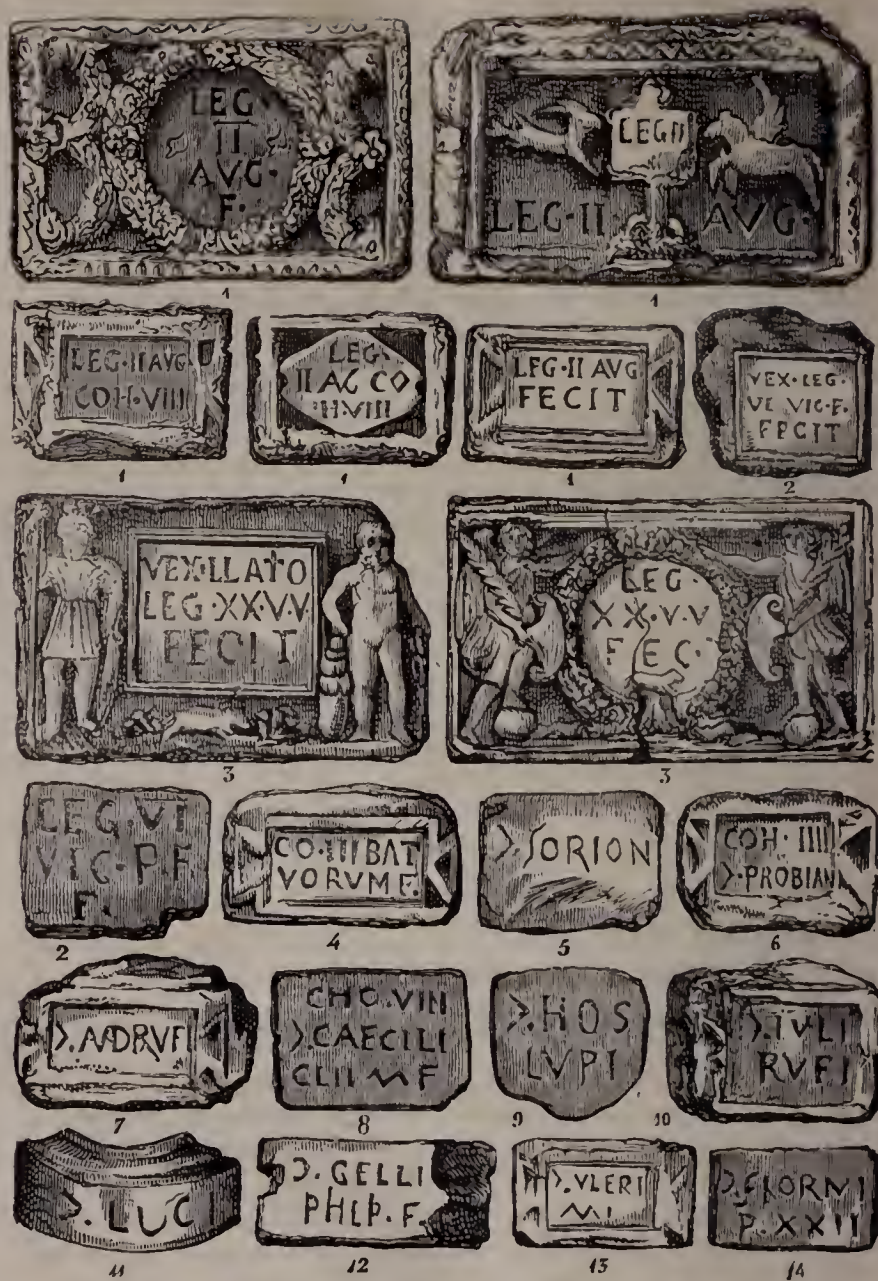 LEG·
II
AVG·
F·
1
LEGII
LEG·II· AVG·
1
LEG·II AVG
COH·VIII
1
LEG·
II AG CO
H·VIII
1
LEG·II AVG
FECIT
1
VEX·LEG·
VI VIC·P·F·
FECIT
2
VEXILLATO
LEG·XX·V·V
FECIT
3
LEG·
XX·V·V
FEC·
3
LEG·VI
VIC·P·F
F·
2
CO·III BAT
VORVM F·
4
>·SORION
5
COH·IIII
>·PROBIAN
6
7
CHO·VIII
>·CAECILI
F
8
>·HOS
LVPI
9
>·IVLI
RVFI
10
>·LUCI
11
Ɔ·GELLI
PHLP·F·
12
>·VLERI
MI
13
P·XXII
14